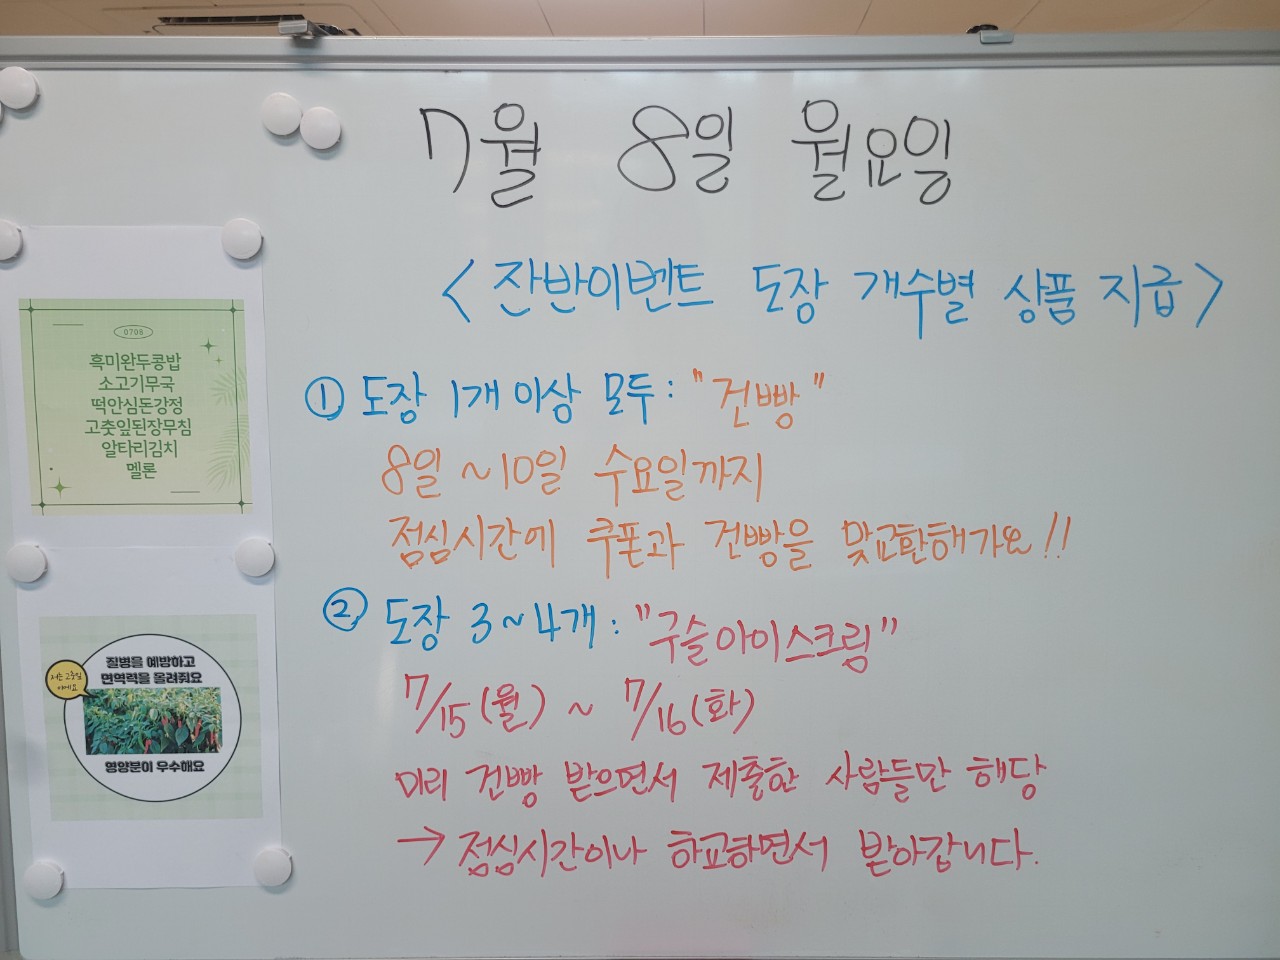 7월 8일 월요일
<잔반이벤트 도장 개수별 상품 지급>
① 도장 1개 이상 모두: "건빵"
8일 ~10일 수요일까지
점심시간에 쿠폰과 건빵을 맞교환해가요!!
② 도장 3~4개: "구슬아이스크림"
7/15(월) ~ 7/16(화)
미리 건빵 받으면서 제출한 사람들만 해당
→ 점심시간이나 하교하면서 받아갑니다.
0708
흑미완두콩밥
소고기무국
떡안심돈강정
고춧잎된장무침
알타리김치
멜론
질병을 예방하고
면역력을 올려줘요
저는 고춧잎
이에요
영양분이 우수해요